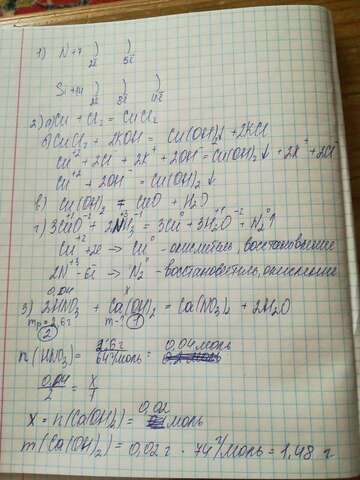 1) N+7 ) )
2ē 5ē
Si+14 ) ) )
2ē 8ē 4ē
2) а) Cu + Cl₂ = CuCl₂
б) CuCl₂ + 2KOH = Cu(OH)₂↓ + 2KCl
Cu⁺² + 2Cl⁻ + 2K⁺ + 2OH⁻ = Cu(OH)₂↓ + 2K⁺ + 2Cl⁻
Cu⁺² + 2OH⁻ = Cu(OH)₂↓
в) Cu(OH)₂ = CuO + H₂O
г) 3CuO⁻² + 2NH₃ = 3Cu⁰ + 3H₂O⁻² + N₂⁰↑
Cu⁺² + 2ē → Cu⁰ - окислитель, восстановление
2N⁻³ - 6ē → N₂⁰ - восстановитель, окисление
0,04 x
3) 2HNO₃ + Ca(OH)₂ = Ca(NO₃)₂ + 2H₂O
m-? 1
2
n(HNO₃) = = 0,04 моль
0,04/2 = x/1
x = n(Ca(OH)₂) = 0,02 моль
m(Ca(OH)₂) = 0,02 г · 74 г/моль = 1,48 г